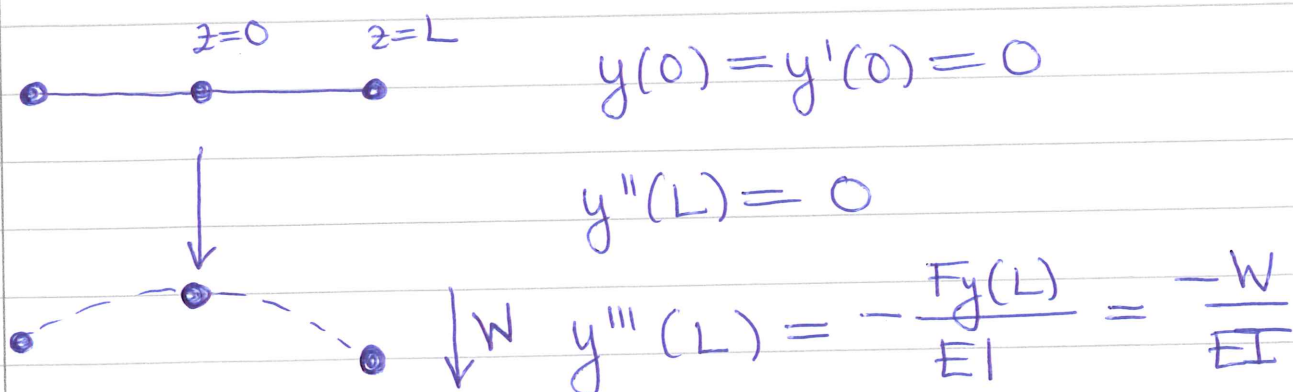 z=0 z=L
y(0) = y'(0) = 0
y''(L) = 0
W y'''(L) = - Fy(L)/EI = -W/EI